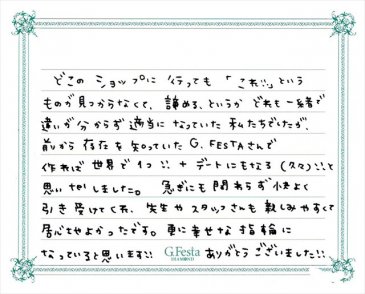 どこの ショップに 行っても 「これ!!」という
ものが見つからなくて、諦める、というか どれも一緒で
違いが分からず適当になっていた私たちでしたが、
前から存在を知っていた G.FESTAさんで
作れば 世界で1つ!! + デートにもなる(久々)!!と
思い TELしました。 急ぎにも関わらず快よく
引き受けてくれ、先生やスタッフさんも親しみやすくて
居心地よかったです。更に幸せな指輪に
なっていると思います!! ありがとうございました!!
G.Festa
DIAMOND